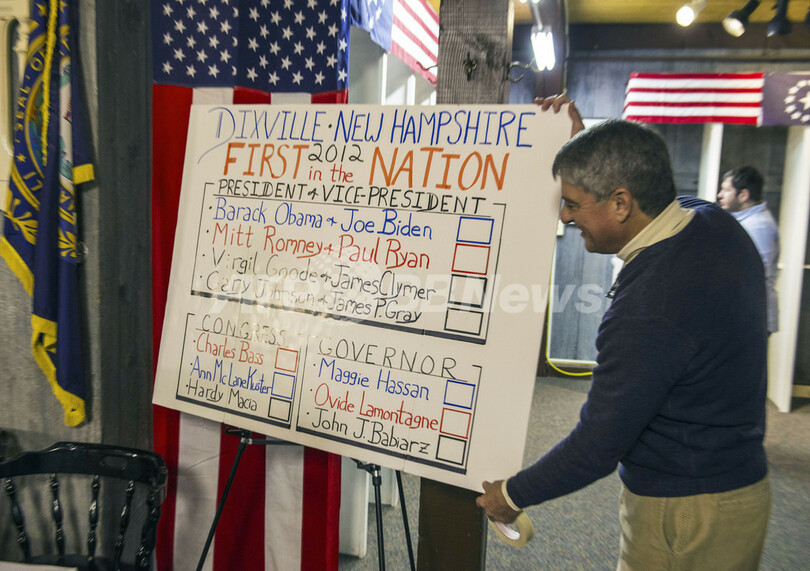 DIXVILLE · NEW HAMPSHIRE
FIRST 2012 in the NATION
PRESIDENT & VICE-PRESIDENT
· Barack Obama & Joe Biden
· Mitt Romney & Paul Ryan
· Virgil Goode & James Clymer
· Gary Johnson & James P. Gray
CONGRESS
· Charles Bass
· Ann McLane Kuster
· Hardy Macia
GOVERNOR
· Maggie Hassan
· Ovide Lamontagne
· John J. Babiarz